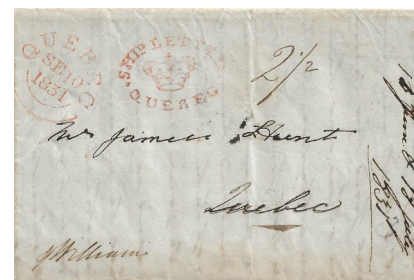 QUEBEC
SE 10
1831
SHIP LETTER
QUEBEC
2 1/2
Mr James Hunt
Quebec
p William
1831